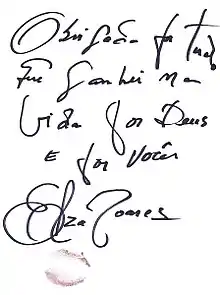 Obrigada por tudo
que Ganhei na
Vida por Deus
E por Vocês
Elza Soares